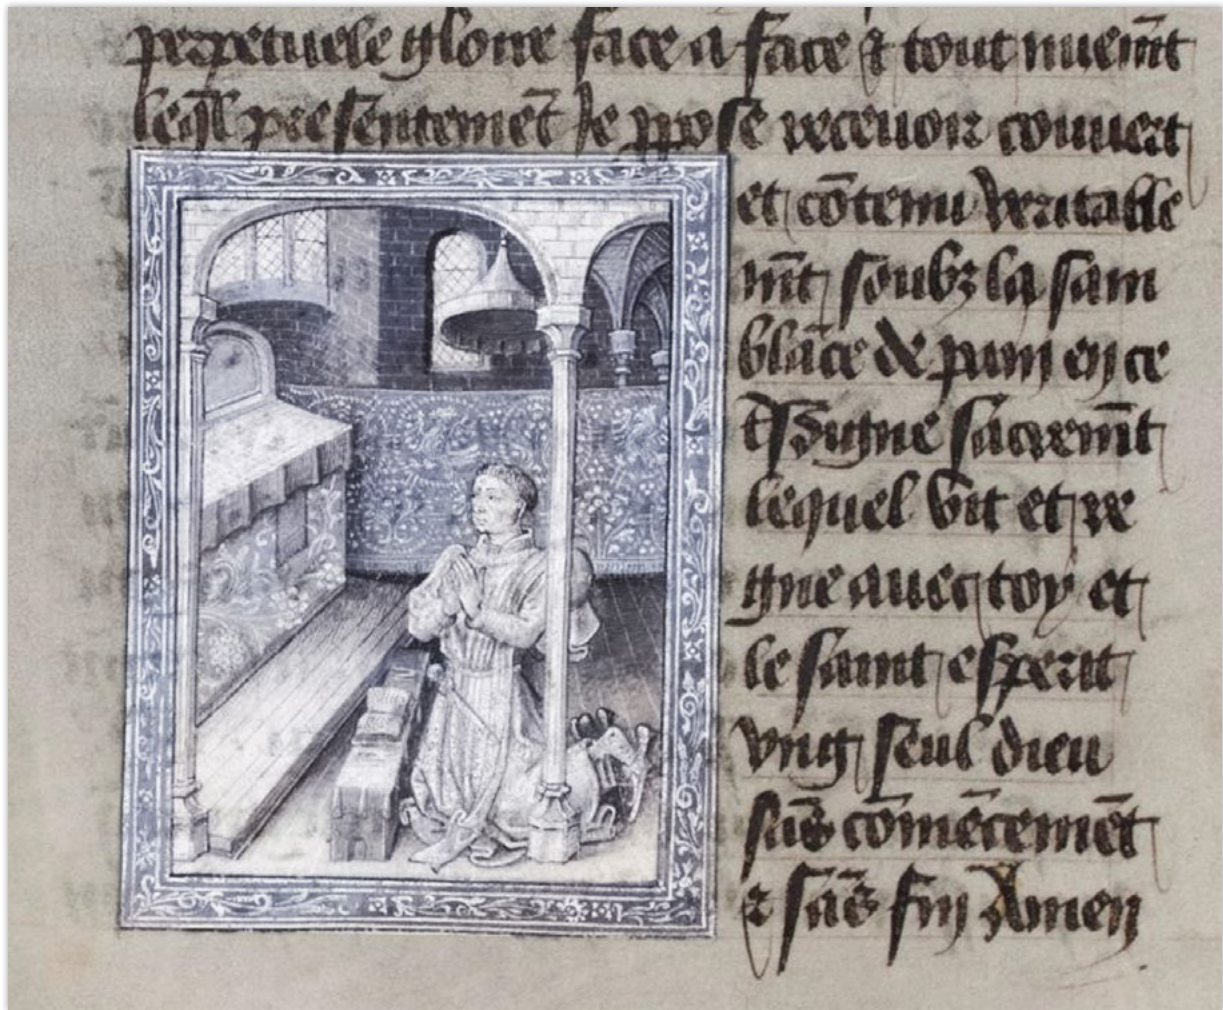 perpetuele glorie face a face ⁊ tout nuem̄t
leq̄l presentemēt Je ꝓpose recevoir couuert
et cōtenu veritable
mēt soubz la sam
blāce de pain en ce
digne sacrem̄t
lequel vit et re
gne auecq toy et
le saint esperit
vng seul dieu
sās cōmēcemēt
⁊ sās fin Amen